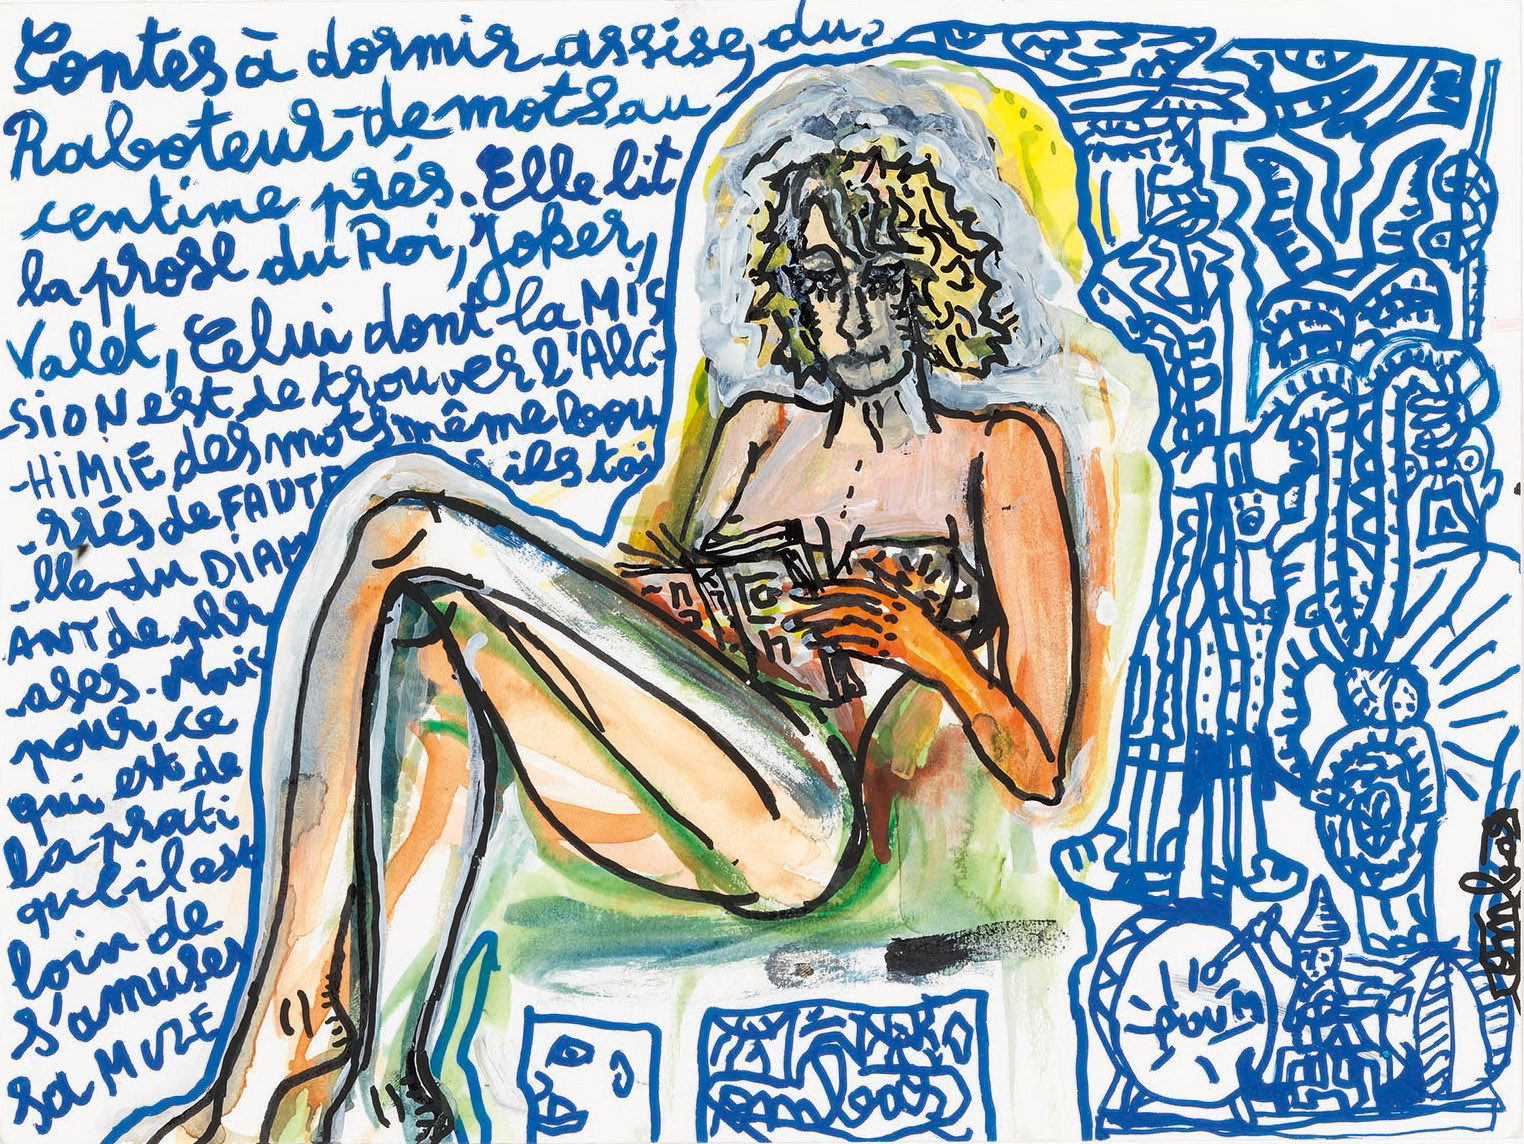 Contes à dormir assise du
Raboteur de mots au
centime près. Elle lit
la prose du Roi, Joker,
Valet, Celui dont la MIS
SION est de trouver l'ALC-
-HiMIE des mots même bou
-rrés de FAUTE S ils tai
-lle du DIAM
ANT de phr
ases. Mais
pour ce
qui est de
la prati
que il est
loin de
s'amuser
sa MUZE
POUM
combas
combas